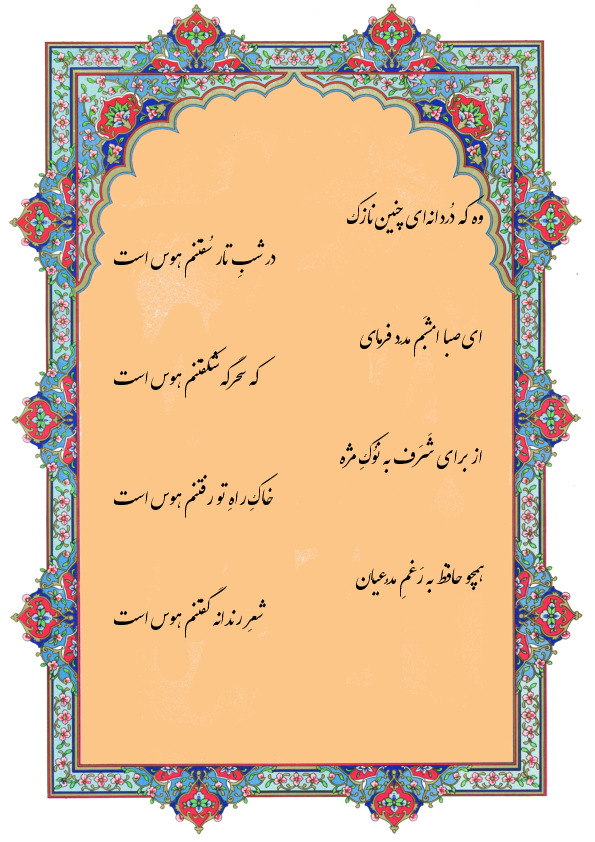 وه که دُردانه‌ای چنین نازک
در شبِ تار سُفتنم هوس است
ای صبا امشبَم مدد فرمای
که سحرگه شکفتنم هوس است
از برای شَرَف به نوُکِ مژه
خاکِ راهِ تو رفتنم هوس است
همچو حافظ به رَغمِ مدعیان
شعرِ رندانه گفتنم هوس است